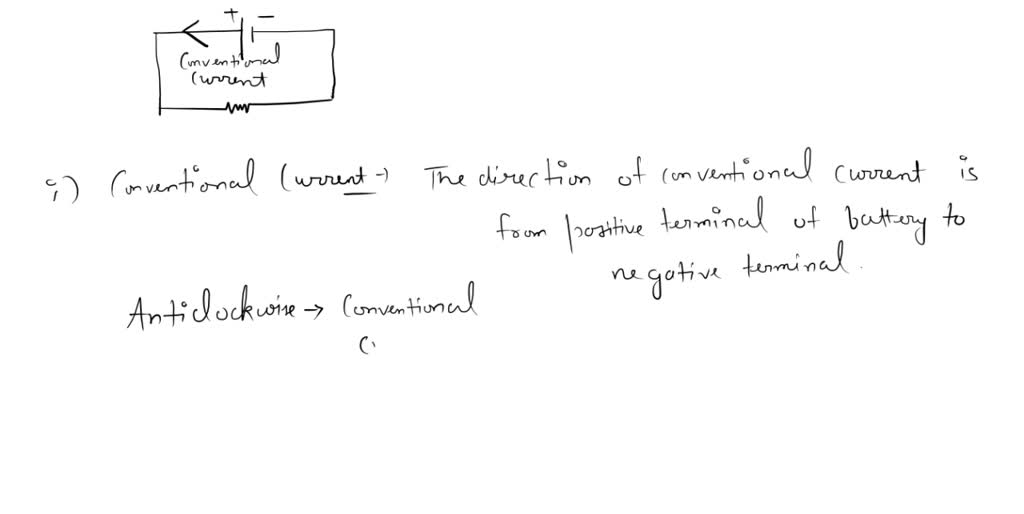 + -
Conventional
Current
i) Conventional Current → The direction of conventional current is
from positive terminal of battery to
negative terminal.
Anticlockwise → Conventional
C